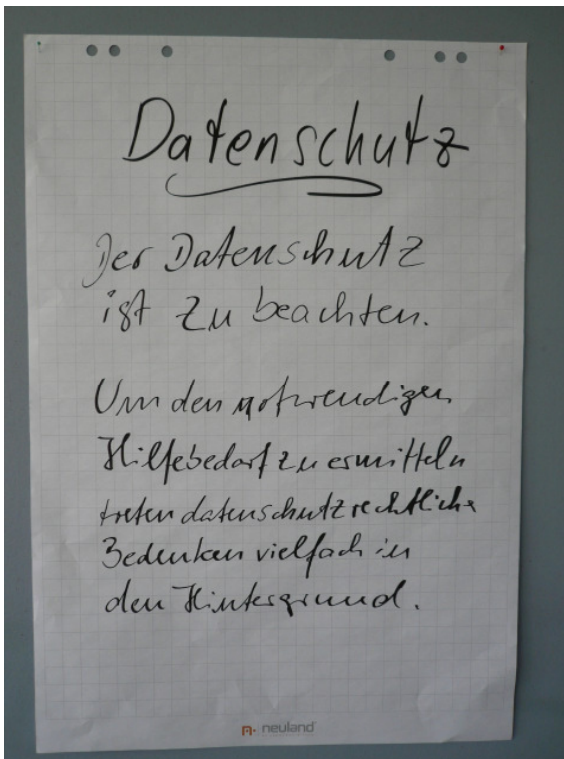 Datenschutz
Der Datenschutz
ist zu beachten.
Um den notwendigen
Hilfebedarf zu ermitteln
treten datenschutzrechtliche
Bedenken vielfach in
den Hintergrund.
neuland